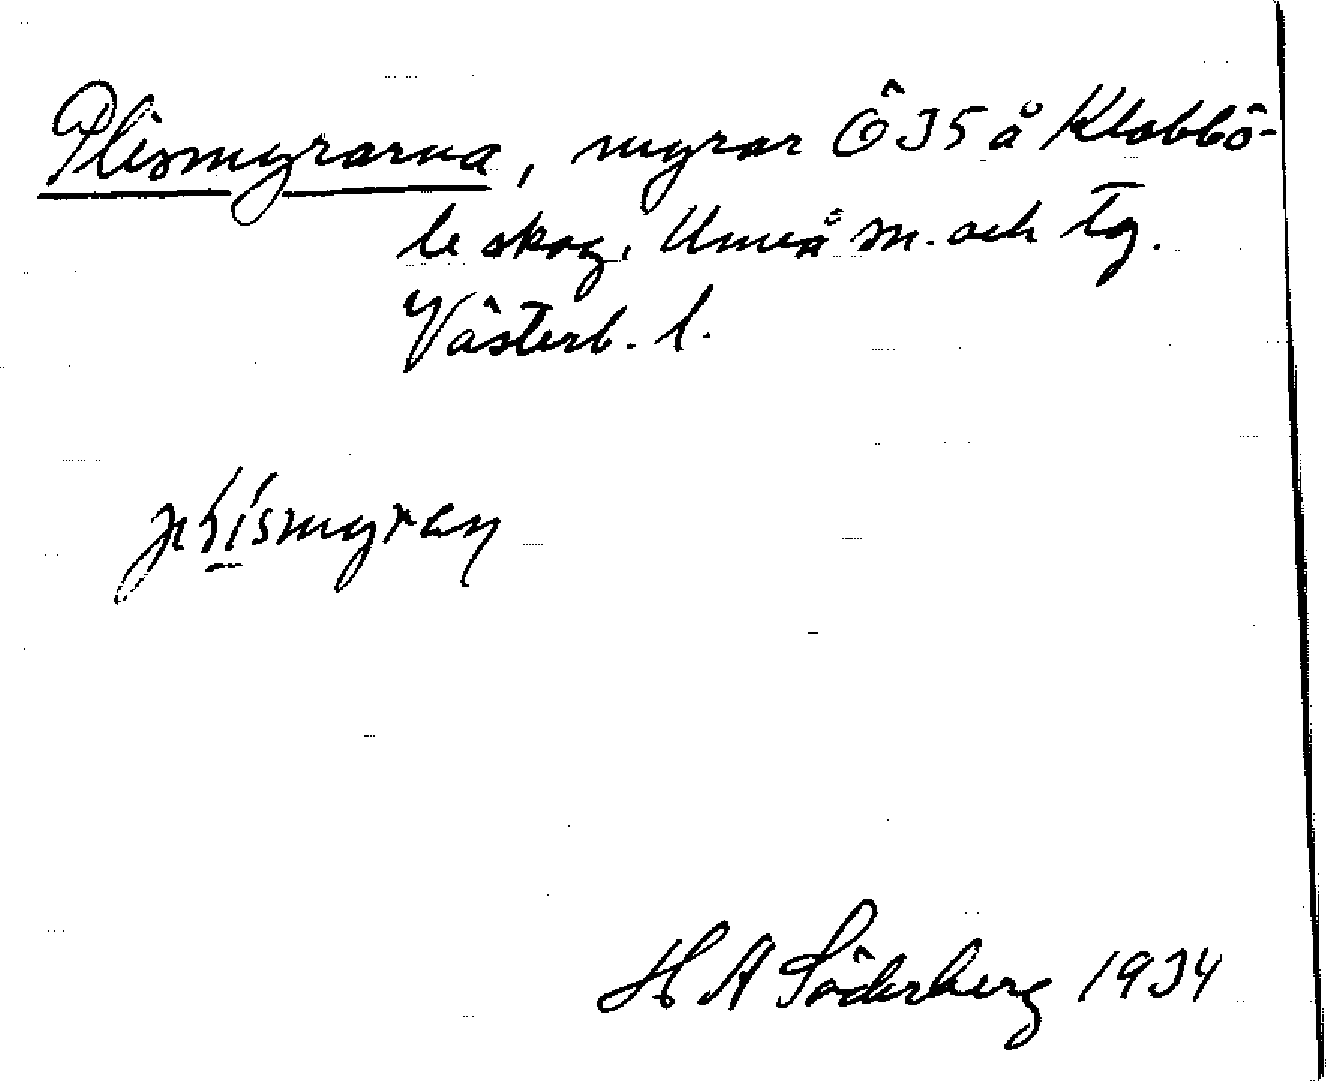 Plismyrarna, myrar Ö 35 å Klabbö-
le skog, Umeå sn. och tg.
Västerb. l.
plismyran
H A Söderberg 1934